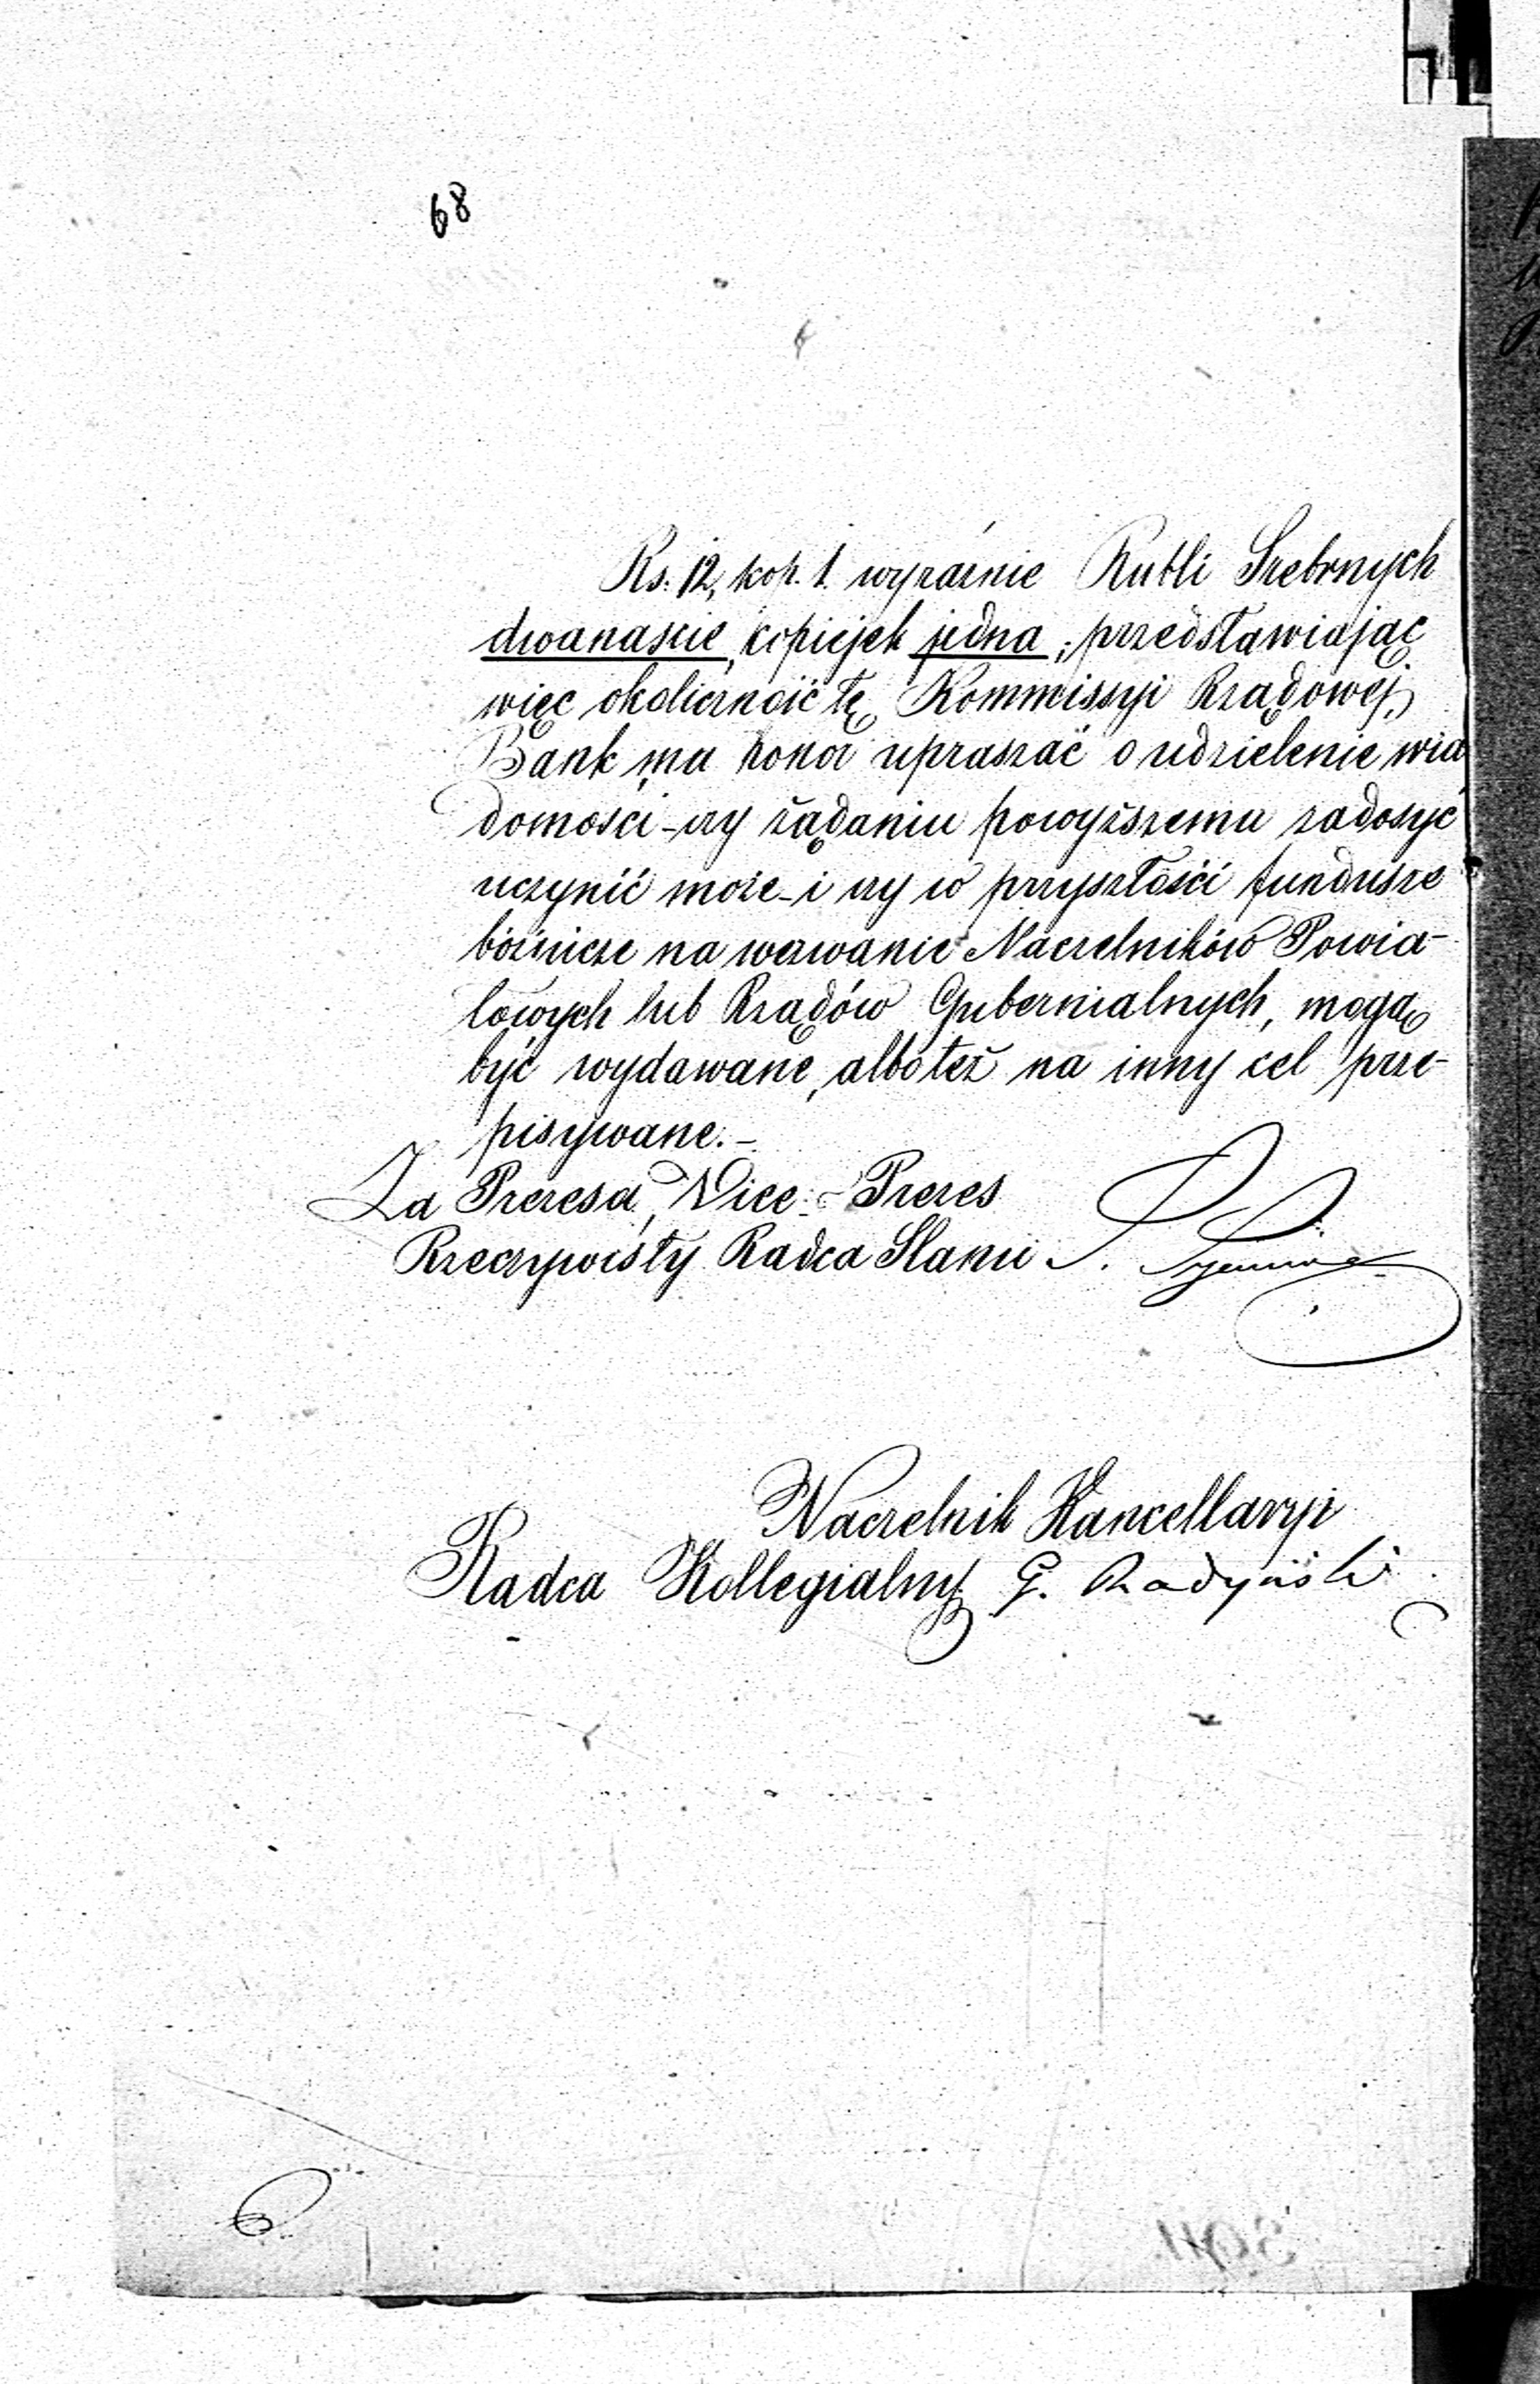 68
Rs. 12, kop. 1. wyraźnie Rubli Srebrnych
dwanaście, kopiejek jedna; przedstawiając
więc okoliczność tę Kommissyi Rządowéj,
Bank ma honor upraszać o udzielenie wia
domości - czy żądaniu powyższemu zadosyć
uczynić może - i czy w przyszłości fundusze
bóżnicze na wezwanie Naczelników Powia-
towych lub Rządów Gubernialnych, mogą
być wydawane, albo też na inny cel prze-
pisywane. -
Za Prezesa, Vice - Prezes
Rzeczywisty Radca Stanu
Naczelnik Kancellaryi
Radca Kollegialny G. Radyński